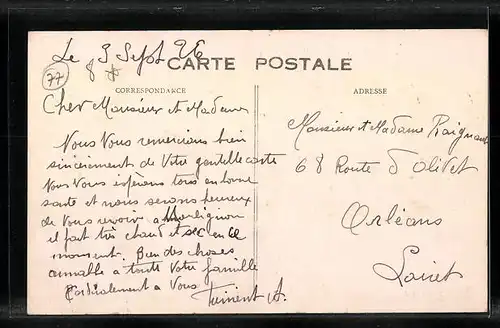 Le 3 Sept 26
77
CARTE POSTALE
CORRESPONDANCE
ADRESSE
Cher Monsieur et Madame
Nous Vous remercions bien
sincèrement de Votre gentille carte
Nous Vous espérons tous en bonne
santé et nous serons heureux
de Vous revoir a
il fait très chaud et sec en ce
moment. Bien des choses
aimable a toute Votre famille
Cordialement a Vous
Monsieur et Madame Raignault
68 Route d'Olivet
Orléans
Loiret